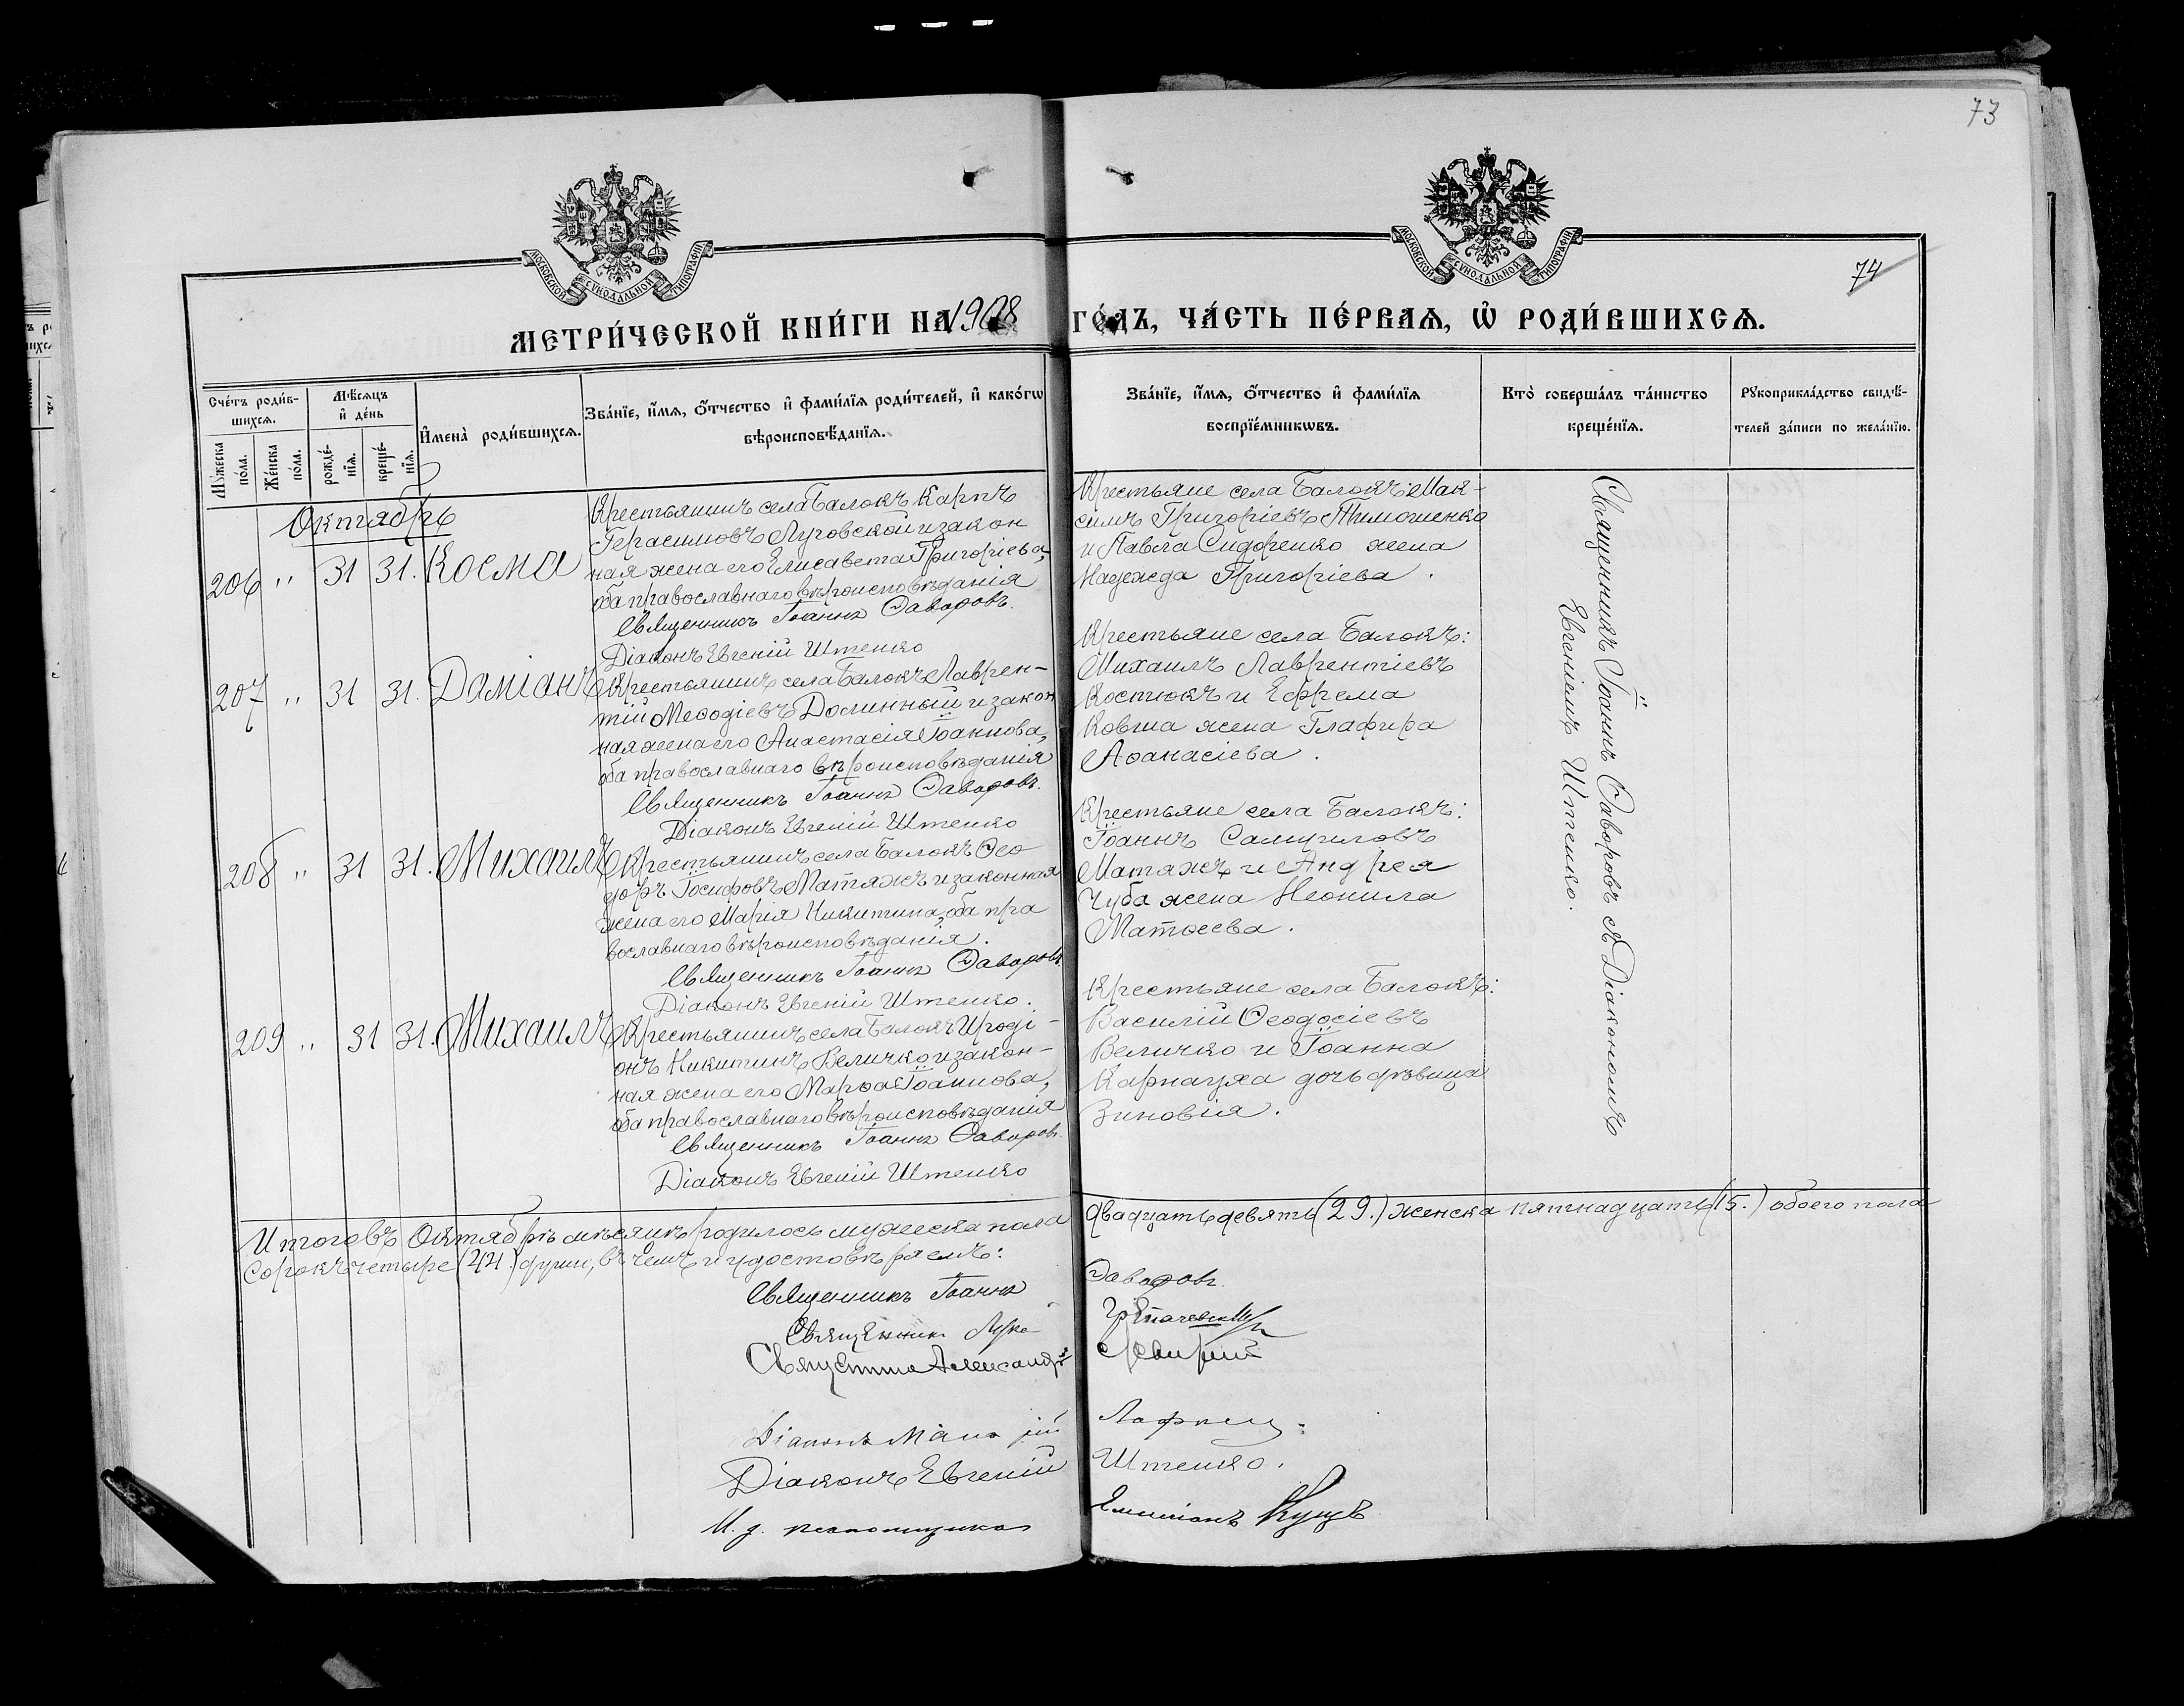 73
74
МОСКОВСКОЙ СѴНОДАЛЬНОЙ ТИПОГРАФІИ
МОСКОВСКОЙ СѴНОДАЛЬНОЙ ТИПОГРАФІИ
МЕТРИ́ЧЕСКОЙ КНИ́ГИ НА 1908 ГО́ДЪ, ЧА́СТЬ ПЕ́РВАЯ, Ѡ РОДИ́ВШИХСЯ.
Сче́тъ роди́в-
шихся.
Мꙋ́жеска по́ла.
Же́нска по́ла.
Мѣ́сяцъ
и҆ де́нь
рожде́-
нїя.
креще́-
нїя.
И҆мена̀ роди́вшихся.
Зва́нїе, и҆́мя, ѻ҆́тчество и҆ фами́лїя роди́телей, и҆ како́гѡ
вѣроисповѣ́данїя.
Зва́нїе, и҆́мя, ѻ҆́тчество и҆ фами́лїя
воспрїе́мникѡвъ.
Кто̀ соверша́лъ та́инство
креще́нїя.
Рꙋкоприкла́дство свидѣ́-
телей за́писи по жела́нїю.
Октябрь
206 " 31 31. Косма
Крестьянинъ села Балокъ Карпъ
Герасимовъ Луговской и закон
ная жена его Елисавета Григоріева,
оба православнаго вѣроисповѣданія
Священникъ Іоаннъ Ѳаворовъ.
Діаконъ Евгеній Штенко
Крестьяне села Балокъ: Мак-
симъ Григоріевъ Тимошенко
и Павла Сидоренко жена
Надежда Григоріева.
207 " 31 31. Даміанъ
Крестьянинъ села Балокъ Лаврен-
тій Меѳодіевъ Долинный и закон
ная жена его Анастасія Іоаннова,
оба православнаго вѣроисповѣданія
Священникъ Іоаннъ Ѳаворовъ.
Діаконъ Евгеній Штенко
Крестьяне села Балокъ:
Михаилъ Лаврентіевъ
Костюкъ и Ефрема
Ковша жена Глафира
Аѳанасіева.
208 " 31 31. Михаилъ
Крестьянинъ села Балокъ Ѳео
доръ Іосифовъ Матяжъ и законная
жена его Марія Никитина, оба пра
вославнаго вѣроисповѣданія.
Священникъ Іоаннъ Ѳаворовъ
Діаконъ Евгеній Штенко.
Крестьяне села Балокъ:
Іоаннъ Самуиловъ
Матяжъ и Андрея
Чуба жена Неонила
Матѳеева.
209 " 31 31. Михаилъ
Крестьянинъ села Балокъ Ироді-
онъ Никитинъ Величко и закон-
ная жена его Марѳа Іоаннова,
оба православнаго вѣроисповѣданія
Священникъ Іоаннъ Ѳаворовъ.
Діаконъ Евгеній Штенко
Крестьяне села Балокъ:
Василій Ѳеодосіевъ
Величко и Іоанна
Карнауха дочь дѣвица
Зиновія.
Священникъ Іоаннъ Ѳаворовъ съ Діакономъ
Евгеніемъ Штенко.
Итого въ Октябрѣ мѣсяцѣ родилось мужеска пола двадцать девять (29.) женска пятнадцать (15.) обоего пола
сорокъ четыре (44) души, въ чемъ и удостовѣряемъ:
Священникъ Іоаннъ Ѳаворовъ.
Священникъ Лука
Священникъ Александръ
Діаконъ
Діаконъ Евгеній Штенко.
И. д. псаломщика Емиліанъ Куцъ